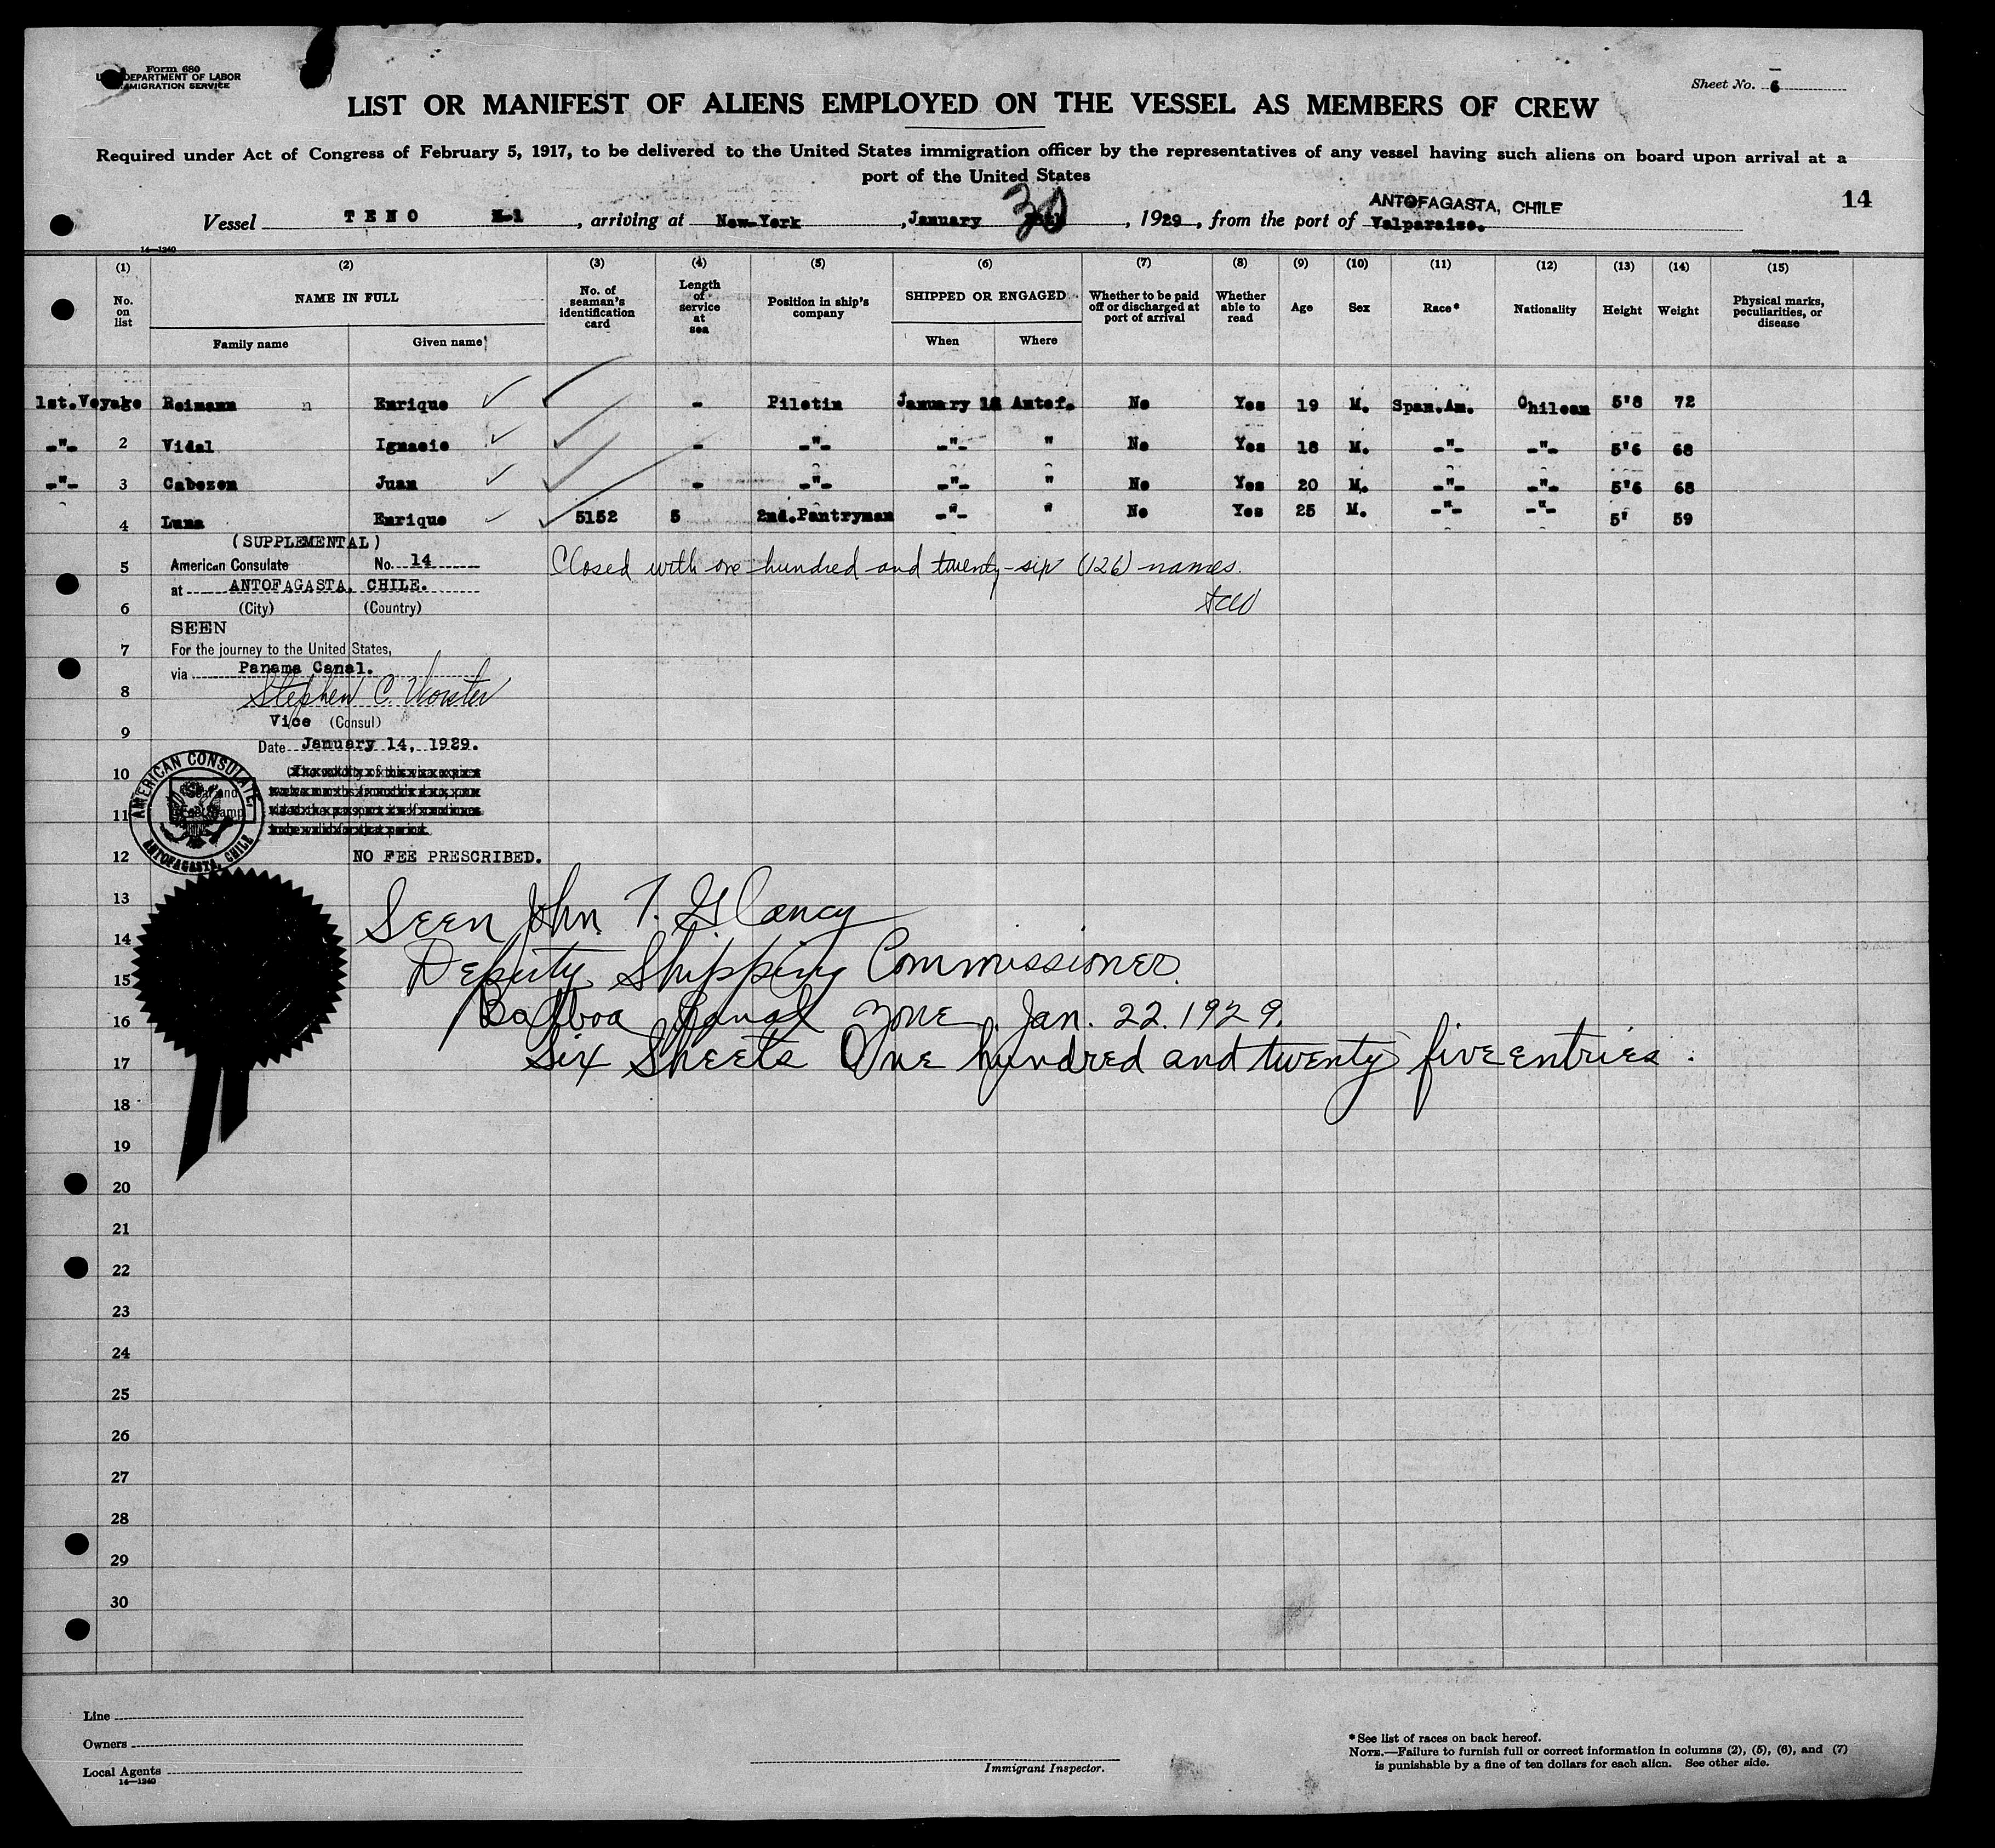 Form 680
U. S. DEPARTMENT OF LABOR
IMMIGRATION SERVICE
Sheet No. 6
LIST OR MANIFEST OF ALIENS EMPLOYED ON THE VESSEL AS MEMBERS OF CREW
Required under Act of Congress of February 5, 1917, to be delivered to the United States immigration officer by the representatives of any vessel having such aliens on board upon arrival at a
port of the United States
ANTOFAGASTA, CHILE
14
Vessel TENO , arriving at New-York , January 30 , 1929 , from the port of Valparaiso.
14—1240
(1) (2) (3) (4) (5) (6) (7) (8) (9) (10) (11) (12) (13) (14) (15)
No. on list
NAME IN FULL
Family name
Given name
No. of seaman's identification card
Length of service at sea
Position in ship's company
SHIPPED OR ENGAGED
When
Where
Whether to be paid off or discharged at port of arrival
Whether able to read
Age
Sex
Race*
Nationality
Height
Weight
Physical marks, peculiarities, or disease
1st.Voyage Reimann n Enrique - Pilotin January Antof. No Yes 19 M. Span.Am. Chilean 5'8 72
-"- 2 Vidal Ignacio - -"- -"- " No Yes 18 M. -"- -"- 5'6 68
-"- 3 Cabezon Juan - -"- -"- " No Yes 20 M. -"- -"- 5'6 68
4 Luna Enrique 5152 5 2nd.Pantryman -"- " No Yes 25 M. -"- -"- 5' 59
(SUPPLEMENTAL)
5 American Consulate No. 14 Closed with one hundred and twenty-six (126) names.
at ANTOFAGASTA, CHILE.
6 (City) (Country)
SEEN
7 For the journey to the United States,
via Panama Canal.
8 Stephen C. Worster
Vice (Consul)
9
Date January 14, 1929.
10
11
AMERICAN CONSULATE,
ANTOFAGASTA, CHILE
12 NO FEE PRESCRIBED.
13 Seen John T. Glancy
14 Deputy Shipping Commissioner
15
16 Balboa Canal Zone. Jan. 22. 1929.
17 Six Sheets One hundred and twenty five entries.
18
19
20
21
22
23
24
25
26
27
28
29
30
Line
Owners
Local Agents
14—1240
Immigrant Inspector.
*See list of races on back hereof.
NOTE.—Failure to furnish full or correct information in columns (2), (5), (6), and (7)
is punishable by a fine of ten dollars for each alien. See other side.